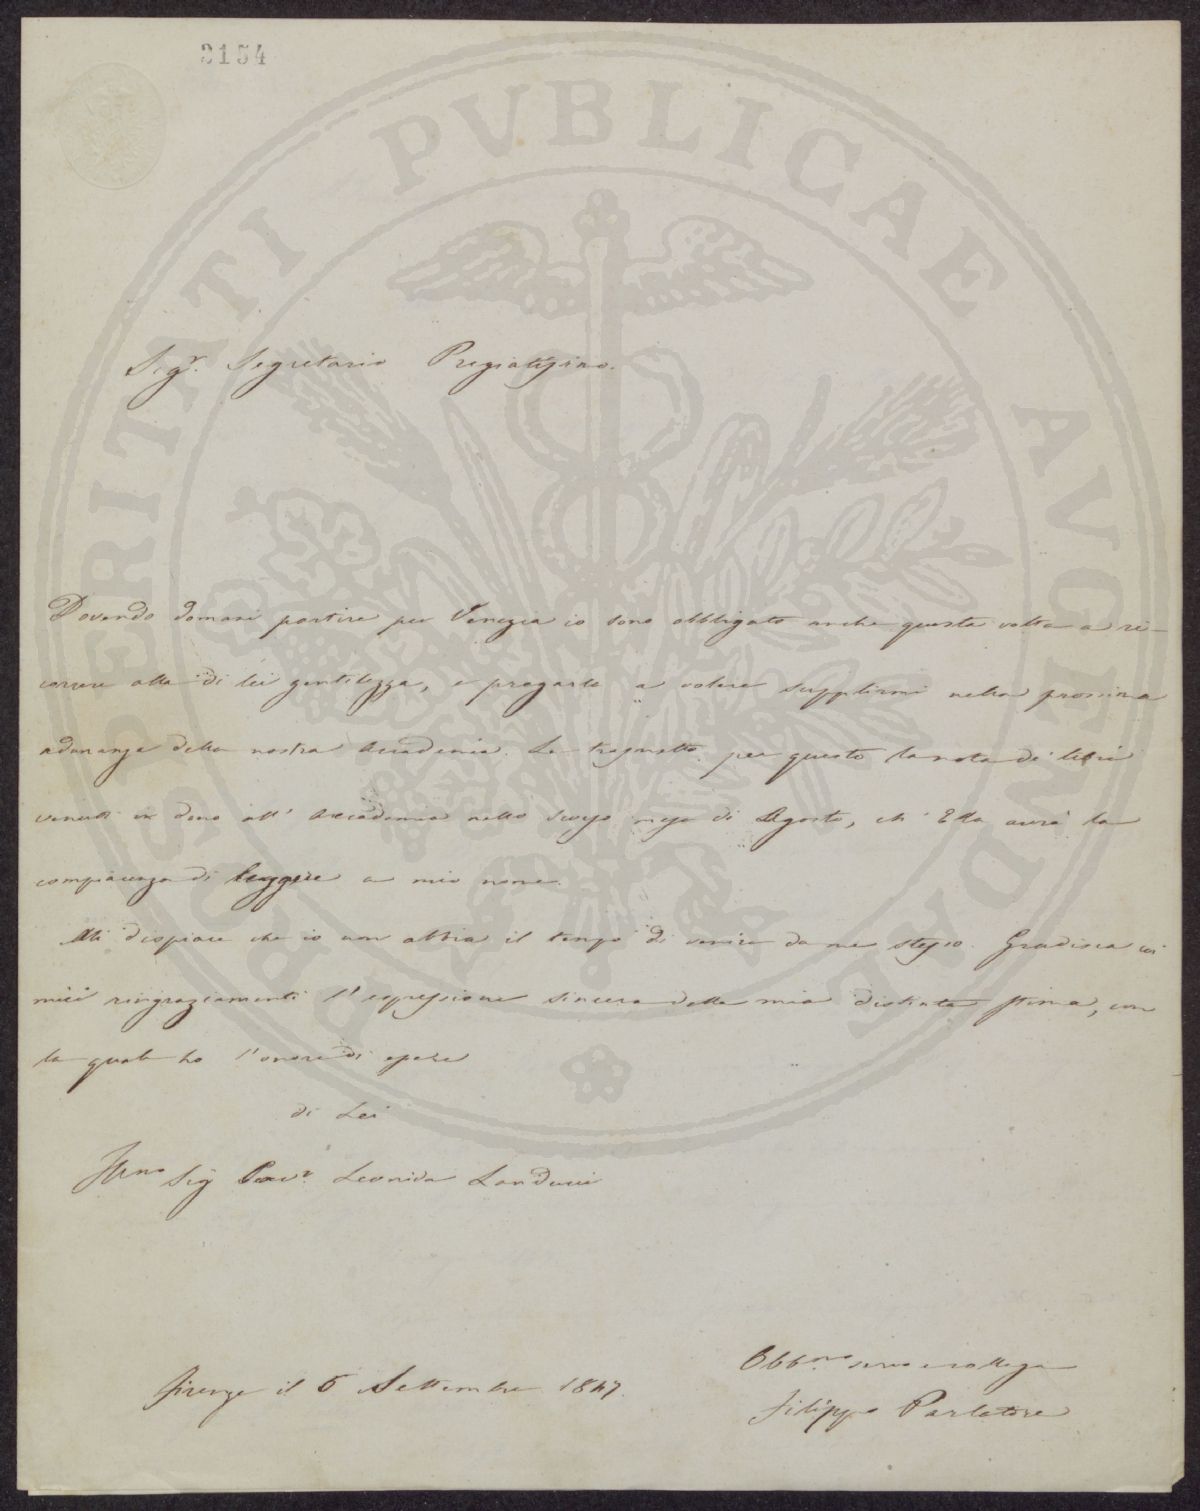 3154
PROSPERITATI PVBLICAE AVGENDAE
Sigr. Segretario Pregiatissimo.
Dovendo domani partire per Venezia io sono obbligato anche questa volta a ri-
correre alla di lei gentilezza, e pregarla a volere supplirmi nella prossima
adunanza della nostra Accademia. Le trasmetto per questo la nota di libri
venuti in dono all' Accademia nello scorso mese di Agosto, ch' Ella avrà la
compiacenza di leggere a mio nome.
Mi dispiace che io non abbia il tempo di venire da me stesso. Gradisca coi
miei ringraziamenti l'espressione sincera della mia distinta stima, con
la quale ho l'onore di essere
di Lei
Illmo Sig Cavr. Leonida Landucci
Obbmo servo e collega
Firenze il 6 Settembre 1847.
Filippo Parlatore